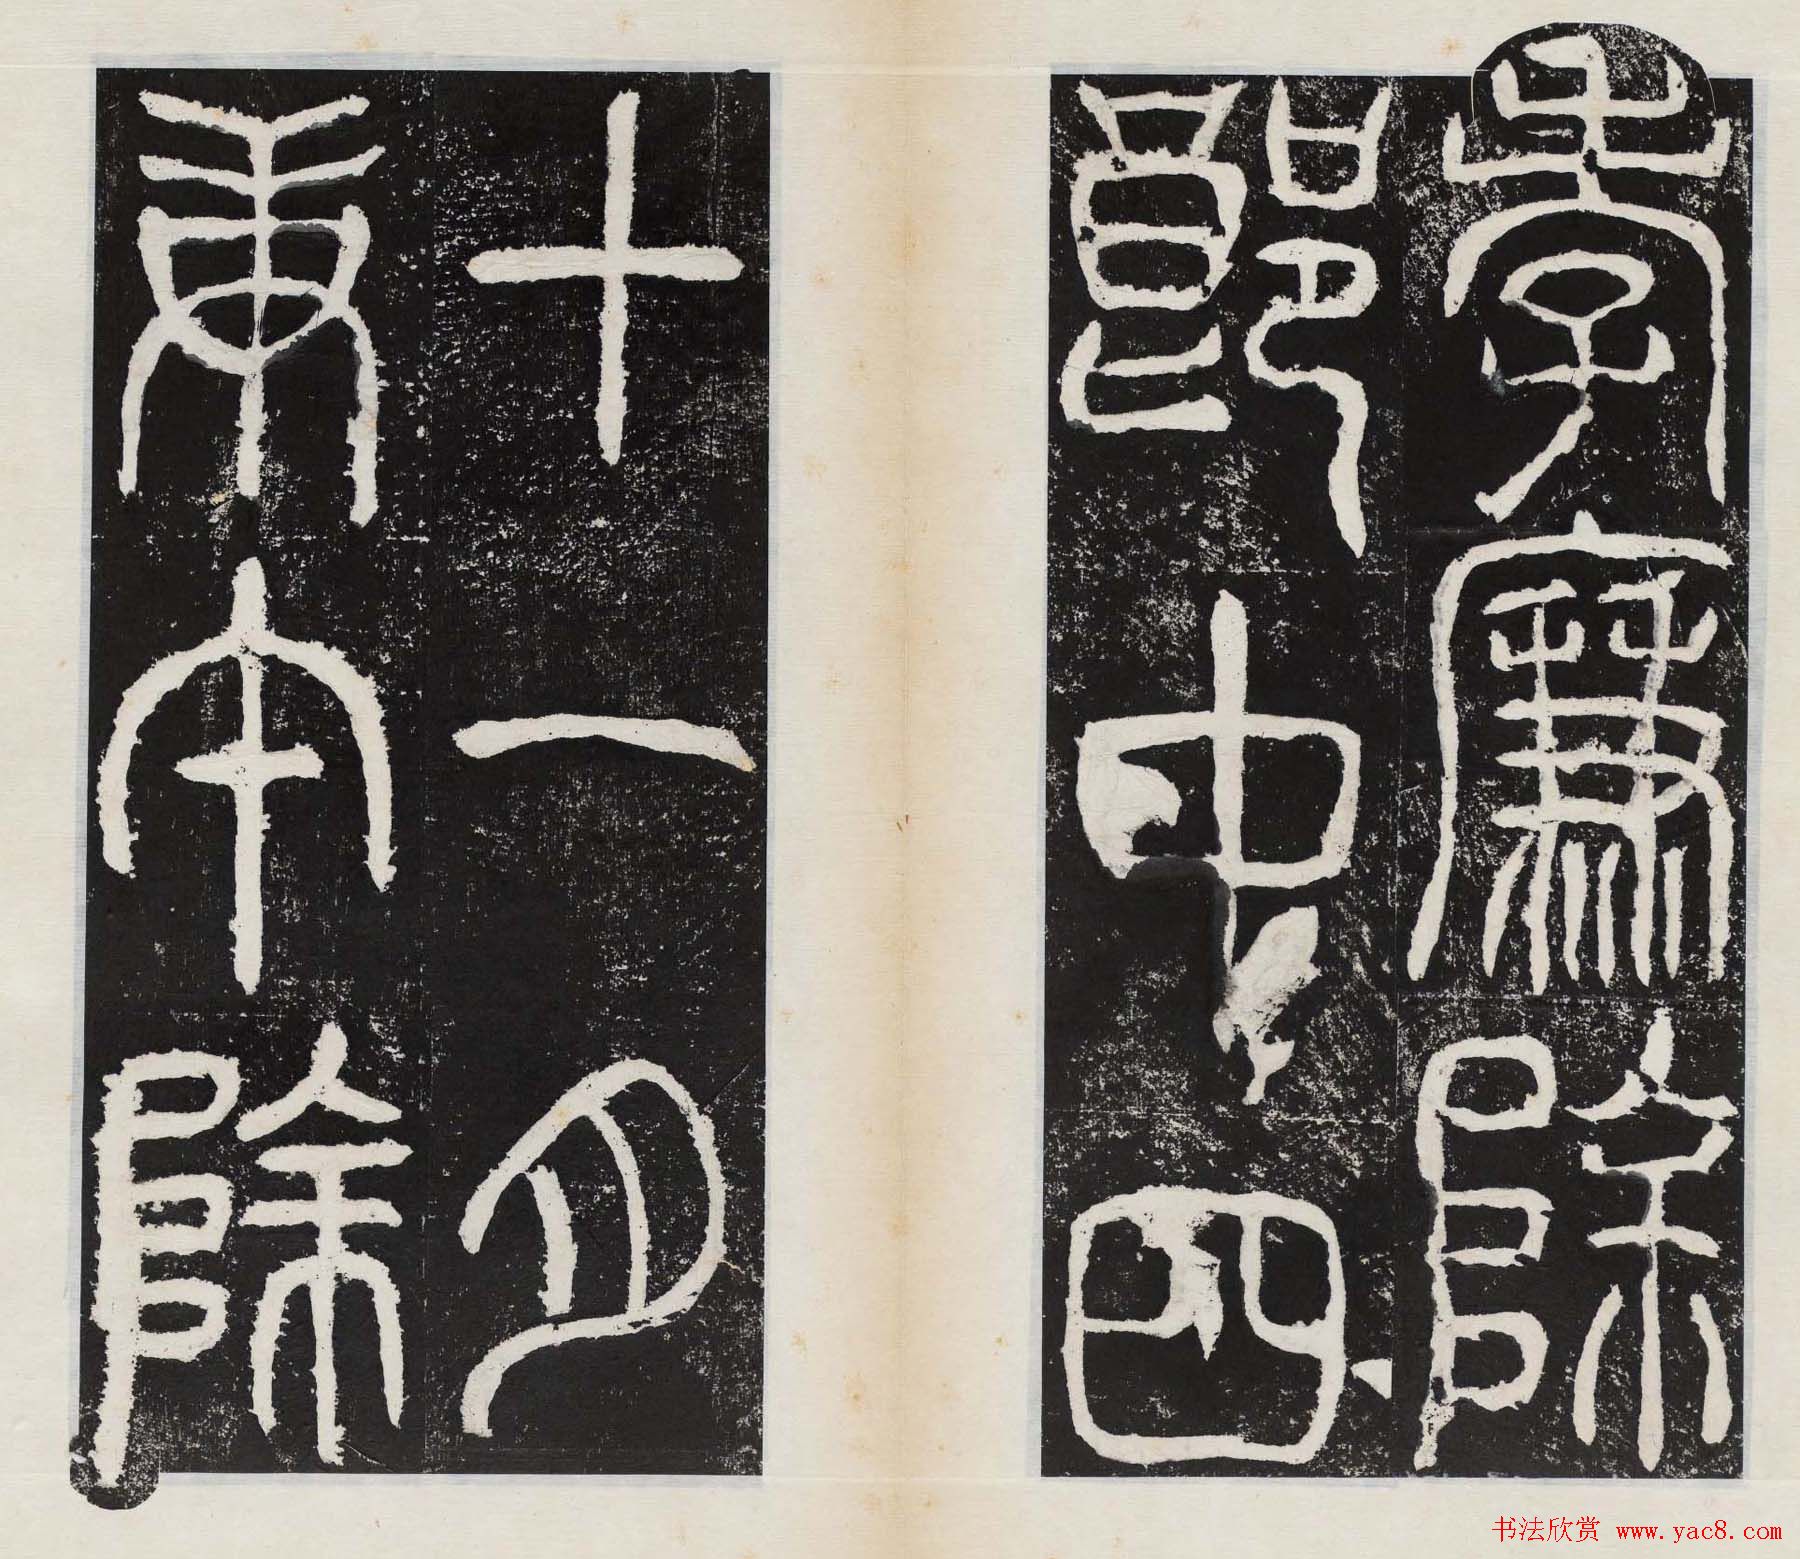 孝廉除
郎中四
十一月
庚午除
书法欣赏 www.yac8.com